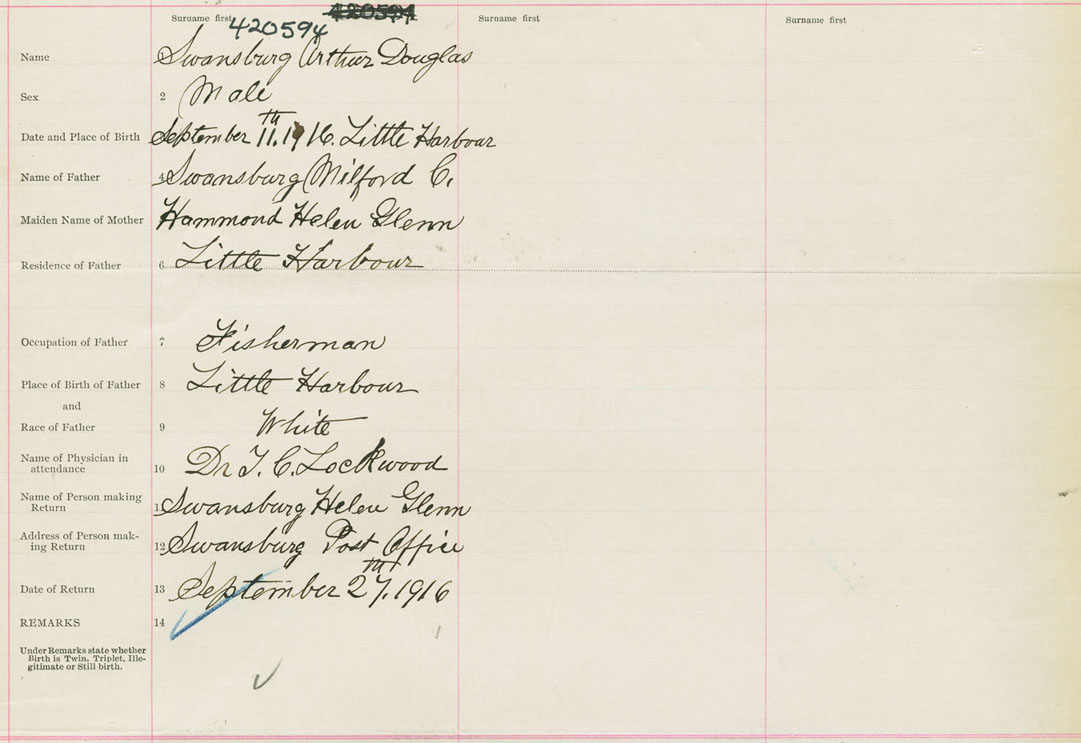 Surname first 420594 420594 Surname first Surname first
Name 1 Swansburg Arthur Douglas
Sex 2 Male
Date and Place of Birth September 11th. 1916. Little Harbour
Name of Father 4 Swansburg Milford C.
Maiden Name of Mother Hammond Helen Glenn
Residence of Father 6 Little Harbour
Occupation of Father 7 Fisherman
Place of Birth of Father 8 Little Harbour
and
Race of Father 9 White
Name of Physician in
attendance 10 Dr T. C. Lockwood
Name of Person making
Return 11 Swansburg Helen Glenn
Address of Person mak-
ing Return 12 Swansburg Post Office
Date of Return 13 September 27th. 1916
REMARKS 14
Under Remarks state whether
Birth is Twin, Triplet, Ille-
gitimate or Still birth.